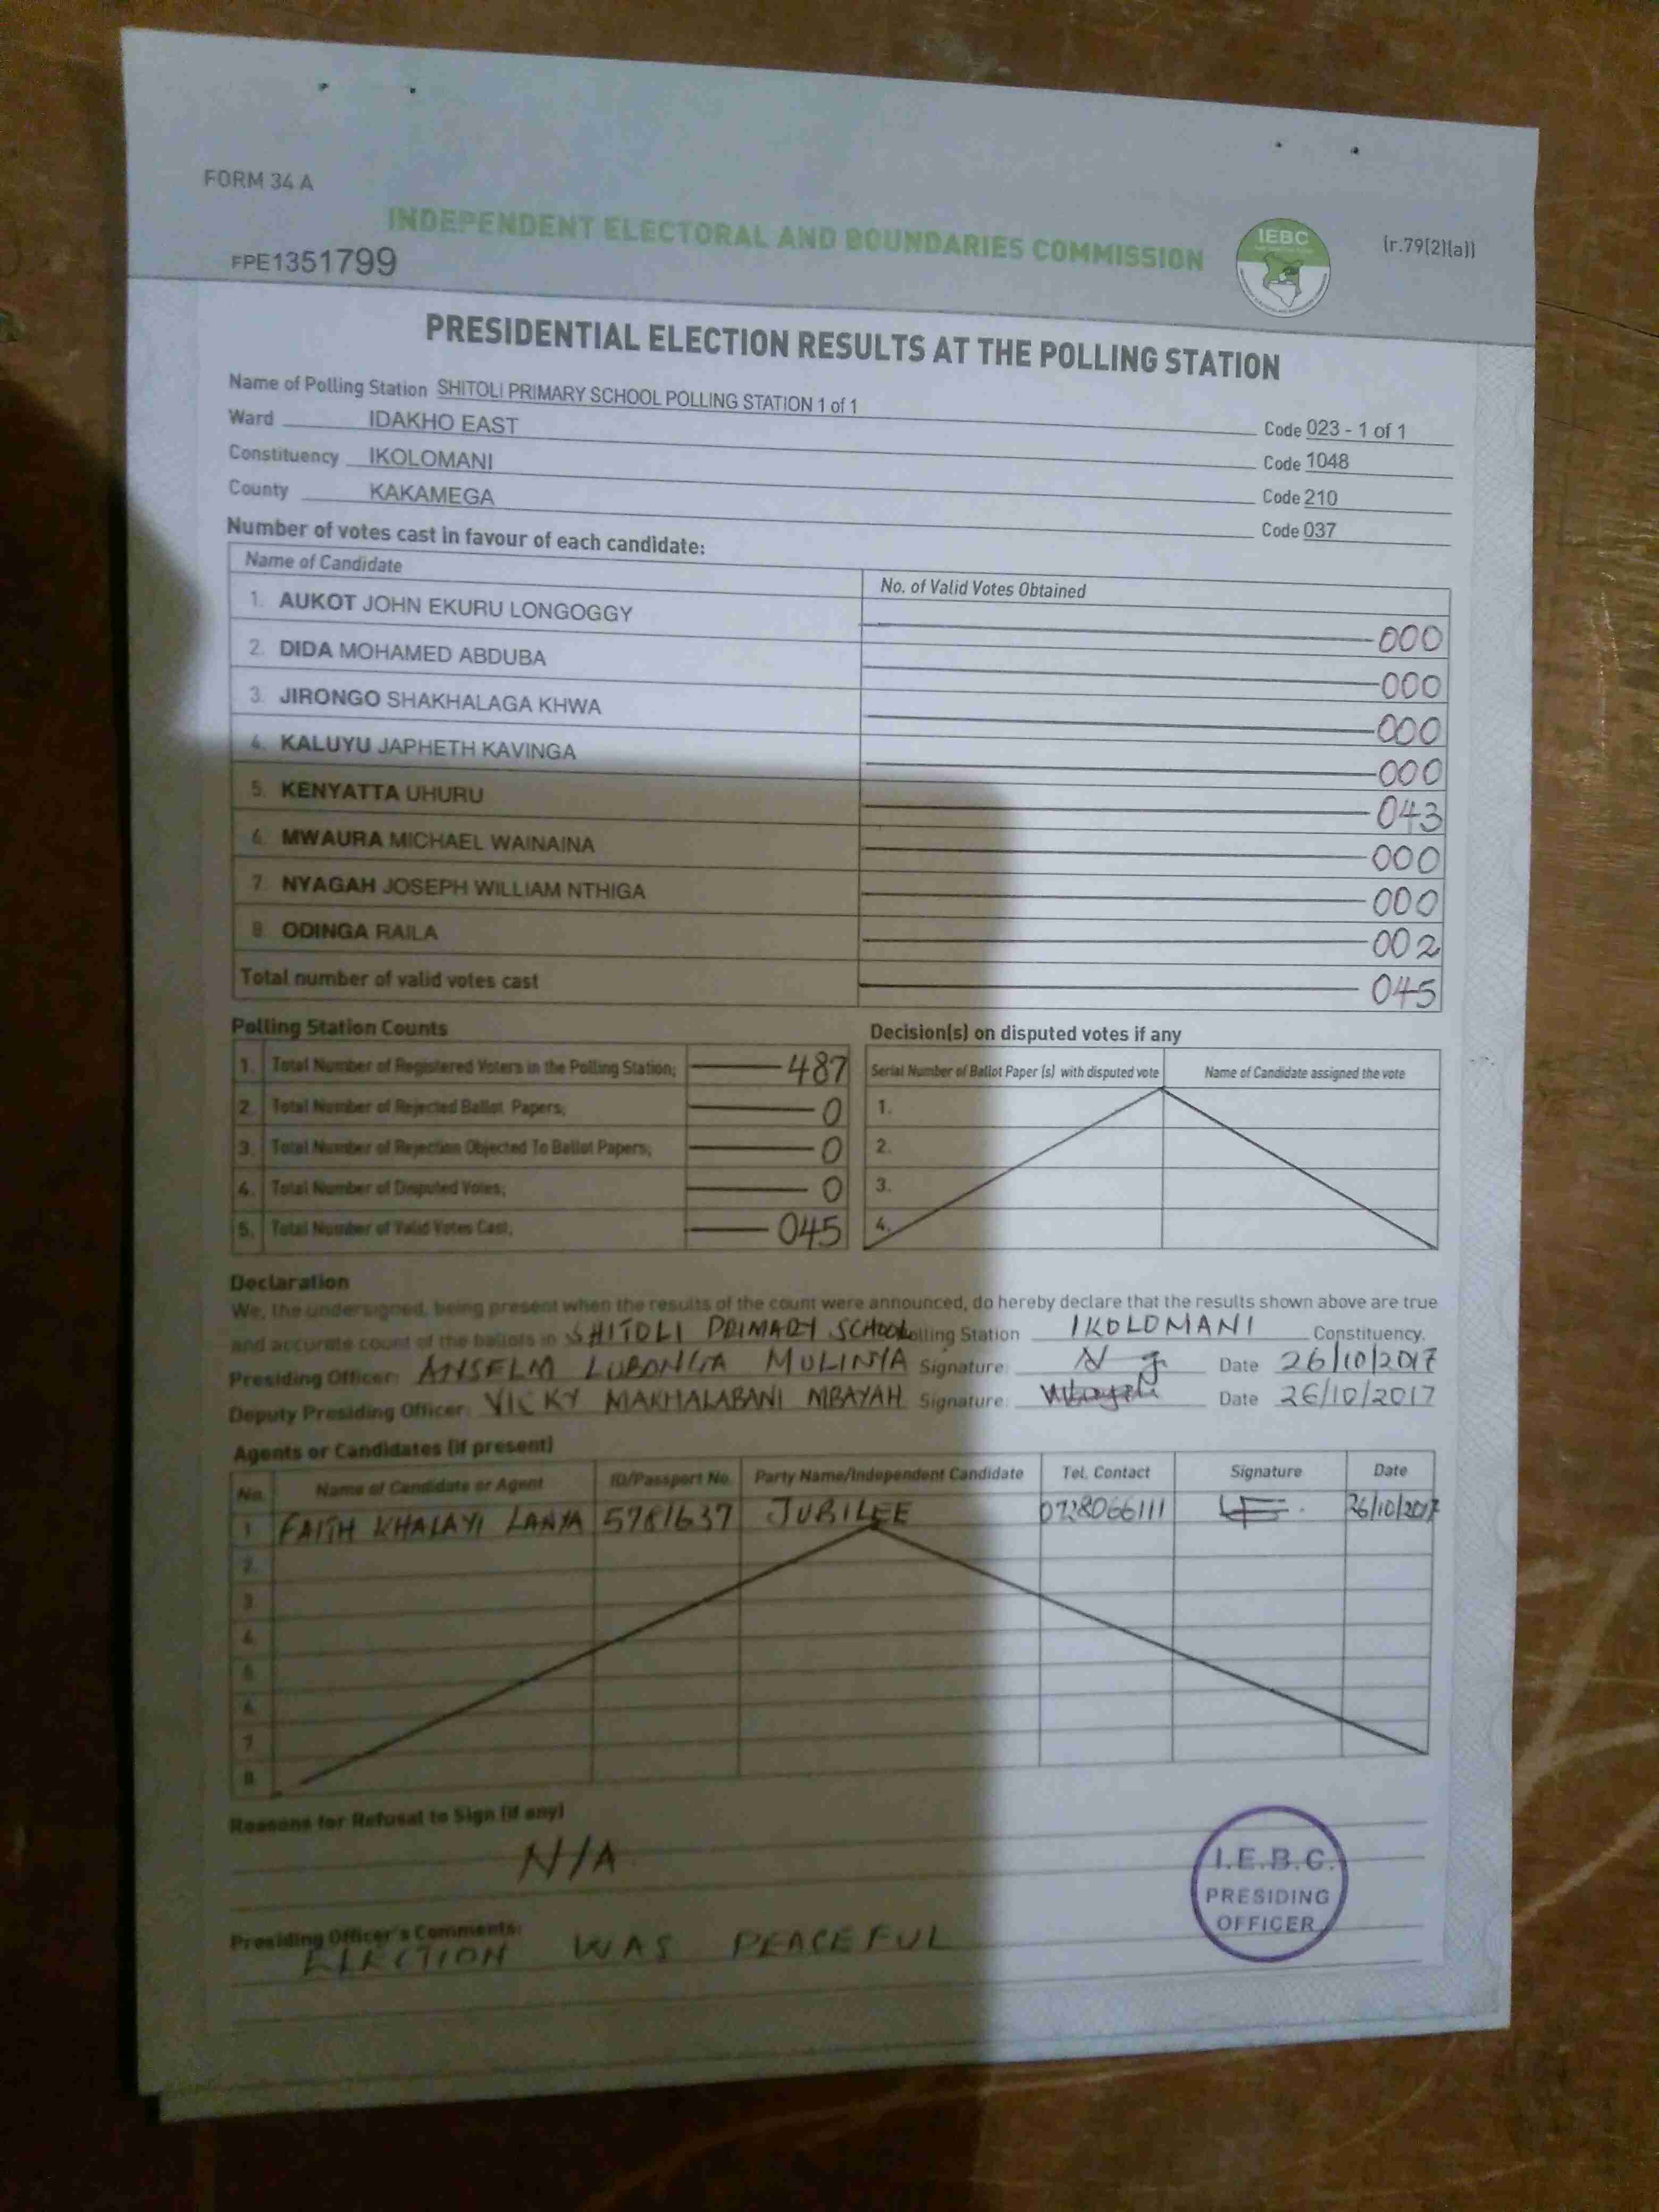 FORM 34 A
INDEPENDENT ELECTORAL AND BOUNDARIES COMMISSION
IEBC
(r.79(2)(a))
FPE1351799
PRESIDENTIAL ELECTION RESULTS AT THE POLLING STATION
Name of Polling Station SHITOLI PRIMARY SCHOOL POLLING STATION 1 of 1 Code 023 - 1 of 1
Ward IDAKHO EAST Code 1048
Constituency IKOLOMANI Code 210
County KAKAMEGA Code 037
Number of votes cast in favour of each candidate:
Name of Candidate No. of Valid Votes Obtained
1. AUKOT JOHN EKURU LONGOGGY 000
2. DIDA MOHAMED ABDUBA 000
3. JIRONGO SHAKHALAGA KHWA 000
4. KALUYU JAPHETH KAVINGA 000
5. KENYATTA UHURU 043
6. MWAURA MICHAEL WAINAINA 000
7. NYAGAH JOSEPH WILLIAM NTHIGA 000
8. ODINGA RAILA 002
Total number of valid votes cast 045
Polling Station Counts
1. Total Number of Registered Voters in the Polling Station; 487
2. Total Number of Rejected Ballot Papers; 0
3. Total Number of Rejection Objected To Ballot Papers; 0
4. Total Number of Disputed Votes; 0
5. Total Number of Valid Votes Cast; 045
Decision(s) on disputed votes if any
Serial Number of Ballot Paper (s) with disputed vote Name of Candidate assigned the vote
1.
2.
3.
4.
Declaration
We, the undersigned, being present when the results of the count were announced, do hereby declare that the results shown above are true
and accurate count of the ballots in SHITOLI PRIMARY SCHOOL Polling Station IKOLOMANI Constituency.
Presiding Officer: ANSELM LUBONGA MULINYA Signature: Date 26/10/2017
Deputy Presiding Officer: VICKY MAKHALABANI MBAYAH Signature: Date 26/10/2017
Agents or Candidates (if present)
No. Name of Candidate or Agent ID/Passport No. Party Name/Independent Candidate Tel. Contact Signature Date
1 FAITH KHALAYI 5781637 JUBILEE 0728066111 26/10/2017
2.
3
4.
5
6.
7
8.
Reasons for Refusal to Sign (if any)
N/A
Presiding Officer's Comments:
ELECTION WAS PEACEFUL
I.E.B.C.
PRESIDING
OFFICER